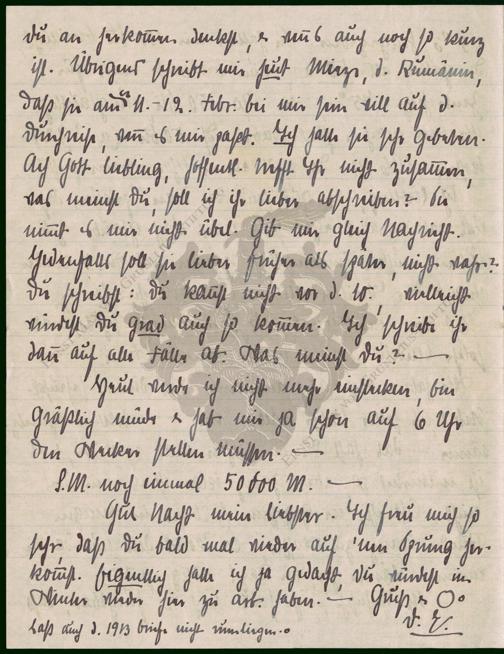 du an herkommen denkst, & wenns auch noch so kurz
ist. Übrigens schreibt mir heut Mieze, d. Rumänin,
daß sie am 11.-12. Febr. bei mir sein will auf d.
Durchreise, wenn es mir paßt. Ich hatte sie sehr gebeten.
Ach Gott Liebling, hoffentl. trefft Ihr nicht zusammen,
was meinst Du, soll ich ihr lieber abschreiben? Sie
nimt es mir nicht übel. Gib mir gleich Nachricht.
Jedenfalls soll sie lieber früher als später, nicht wahr?
Du schreibst: Du kannst nicht vor d. 10., vielleicht
würdest Du grad auch so kommen. Ich schreibe ihr
dann auf alle Fälle ab. Was meinst Du? —
Heut werde ich nicht mehr einstecken, bin
gräßlich müde & hab mir ja schon auf 6 Uhr
den Wecker stellen müssen. —
S.M. noch einmal 50 000 M. —
Gut Nacht mein Liebster. Ich freu mich so
sehr, daß Du bald mal wieder auf 'nen Sprung her-
kommst. Eigentlich hatte ich ja gedacht, Du würdest im
Winter wieder hier zu arb. haben. — Gruß &
Laß auch d. 1913 Briefe nicht rumliegen. D. E.